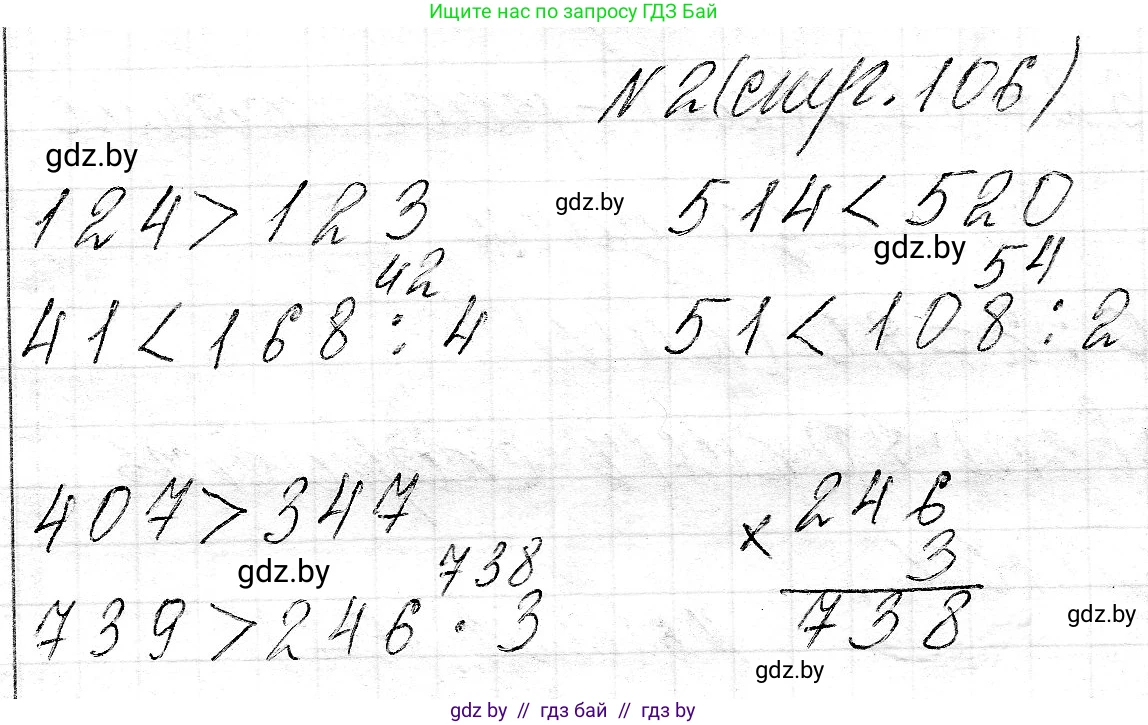 Ищите нас по запросу ГДЗ Бай
N 2 (стр. 106)
gdz.by
124 > 123
gdz.by
514 < 520
gdz.by
42
41 < 168 : 4
54
51 < 108 : 2
407 > 347
gdz.by
738
739 > 246 · 3
246
×
3
738
gdz.by
gdz.by
gdz by // гдз бай // гдз by